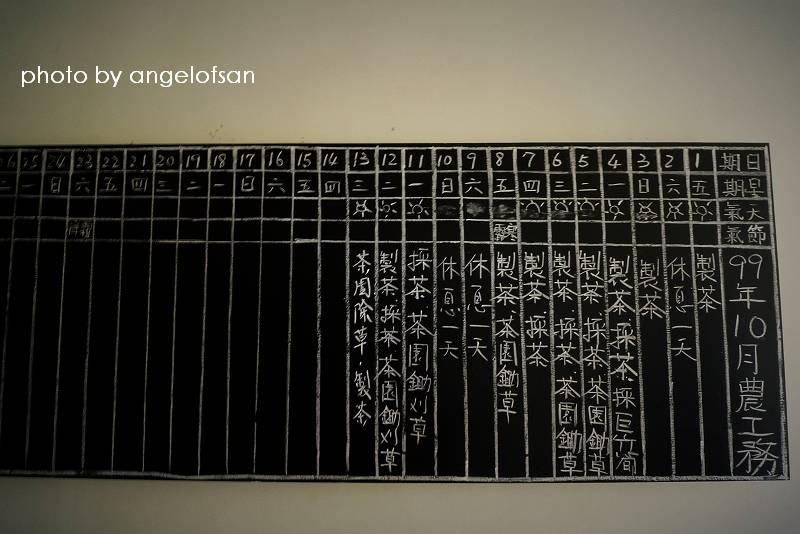 photo by angelofsan
日期 1 2 3 4 5 6 7 8 9 10 11 12 13 14 15 16 17 18 19 20 21 22 23 24 25 26
星期 五 六 日 一 二 三 四 五 六 日 一 二 三 四 五 六 日 一 二 三 四 五 六 日 一 二
天氣
節氣 寒露 霜降
99年10月農工務
製茶
休息一天
製茶
製茶.採茶.採巨竹筍
製茶.採茶.茶園鋤草
製茶.採茶.茶園鋤草
製茶.採茶
製茶.茶園鋤草
休息一天
休息一天
採茶.茶園鋤刈草
製茶.採茶.茶園鋤刈草
茶園除草.製茶